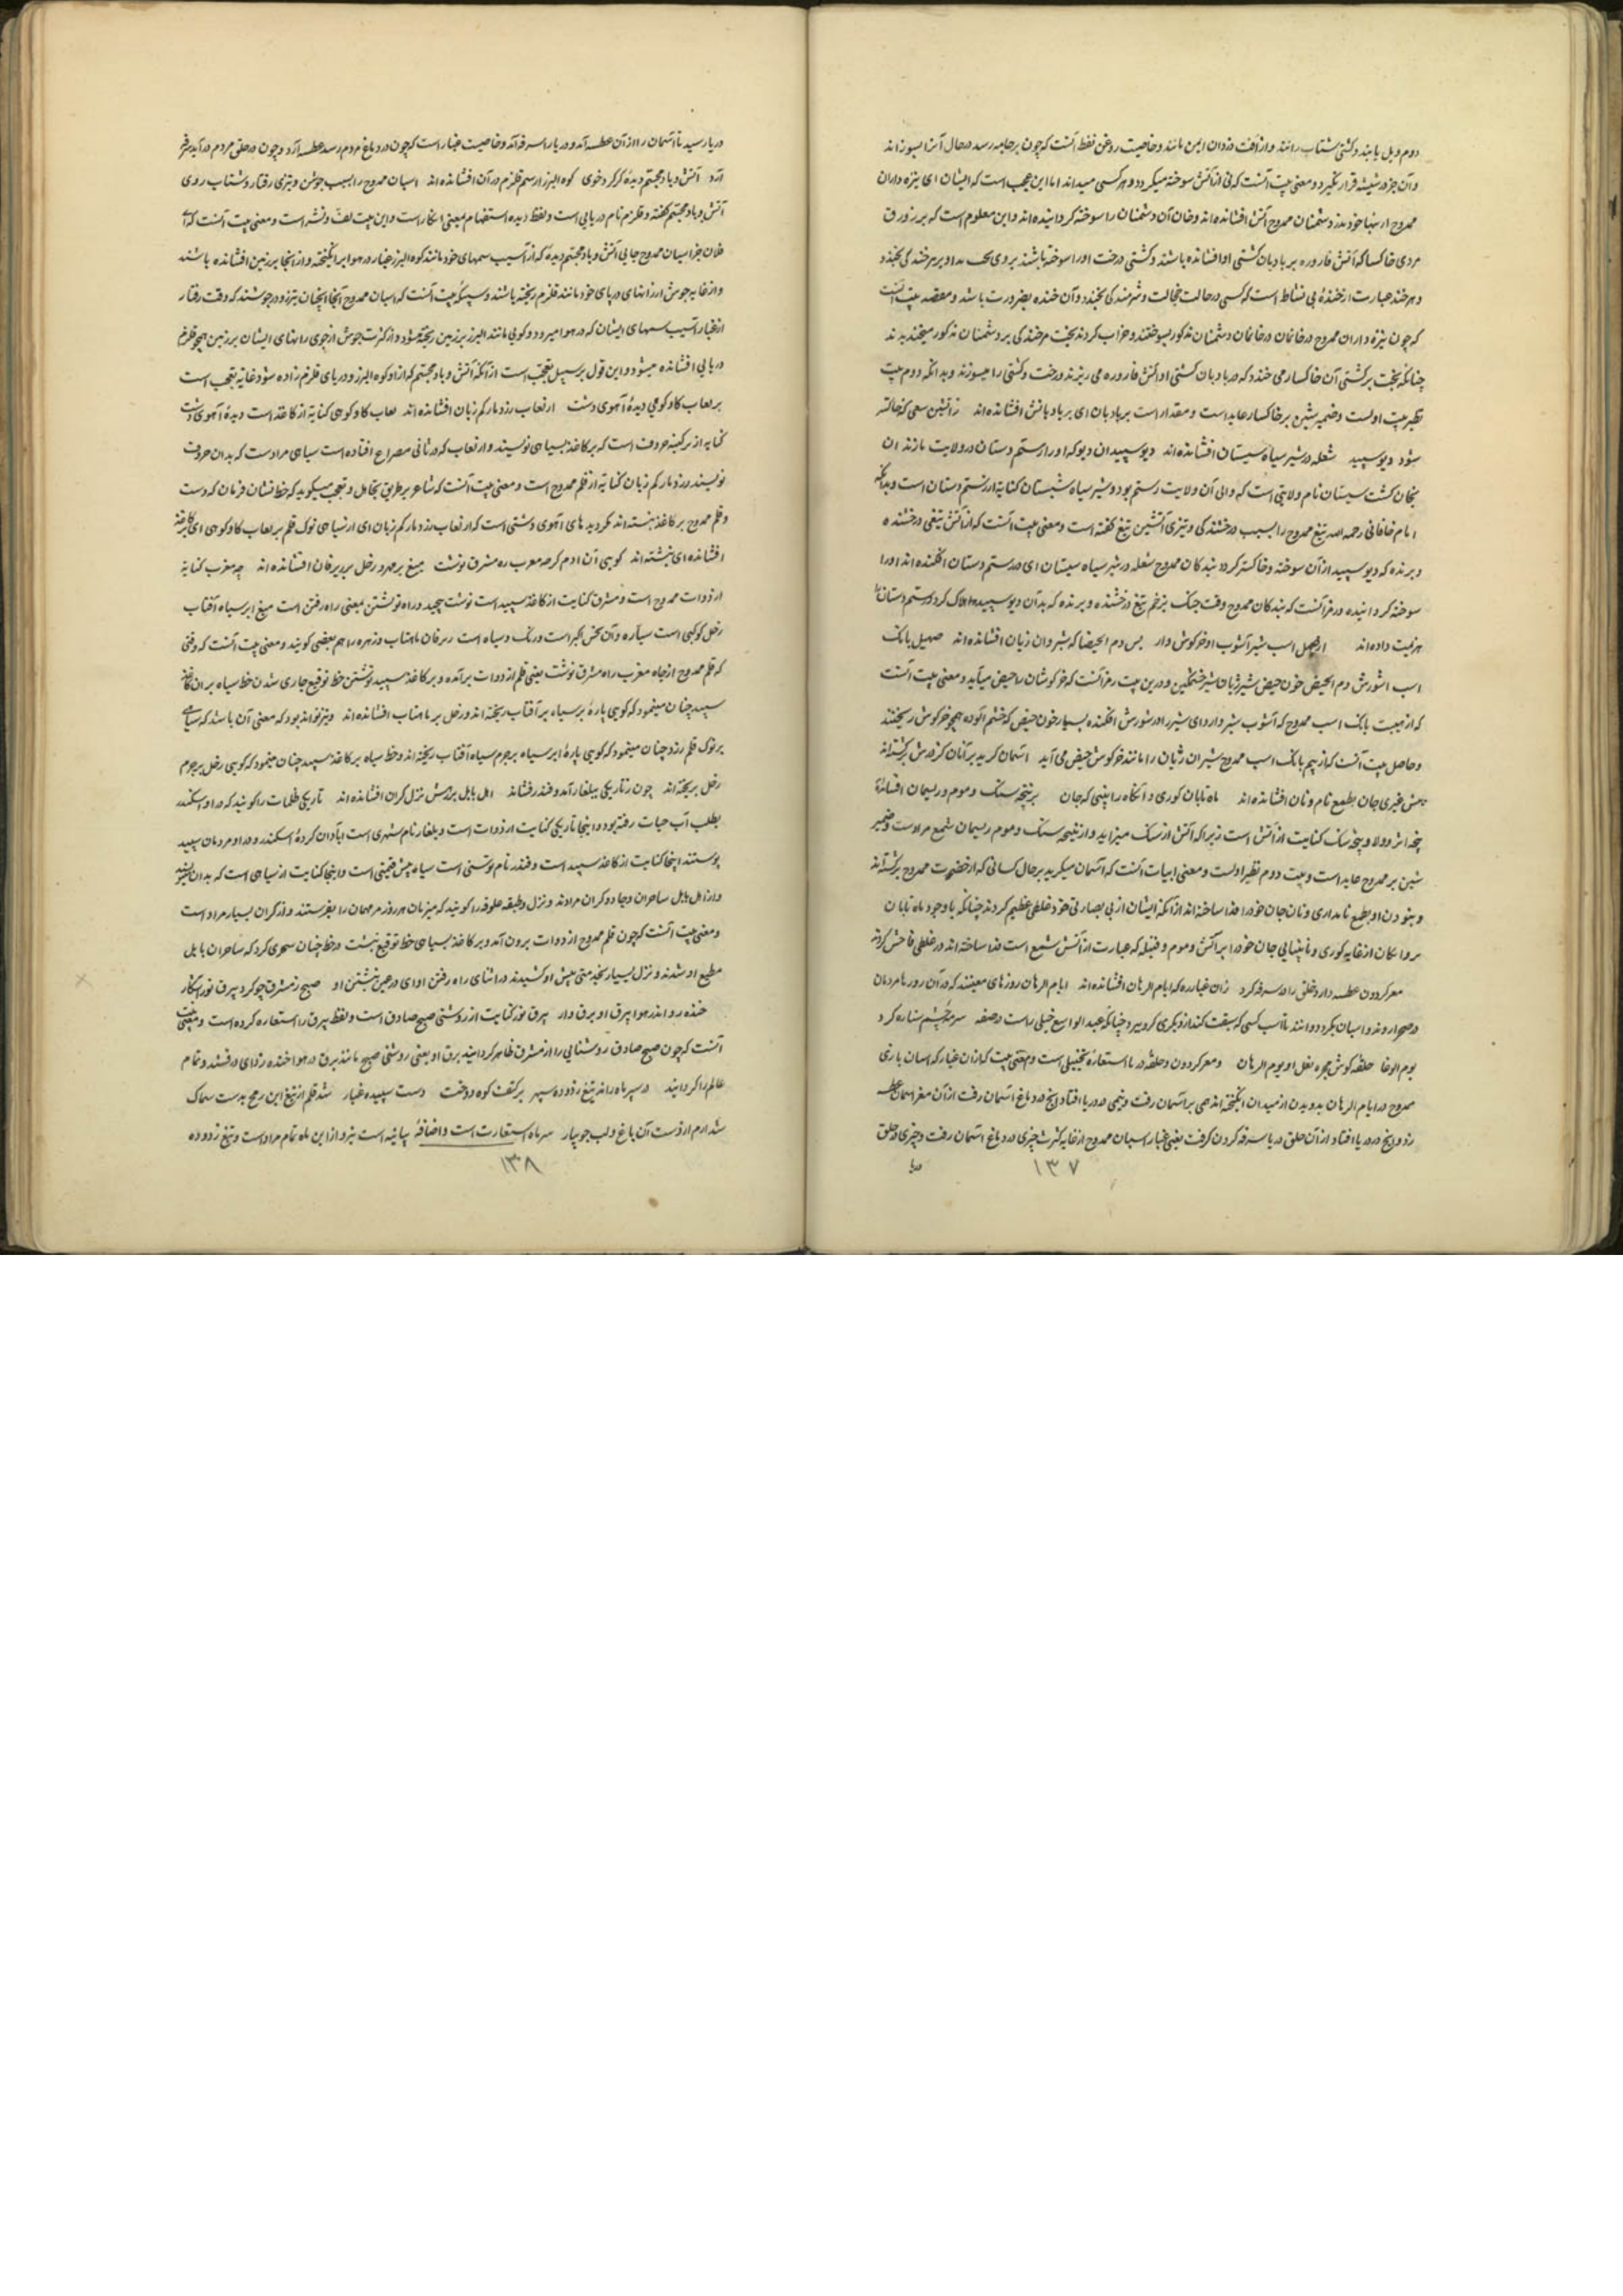 دوم و بل یابند و کشتی شتاب رانند و از آفت دزدان ایمن مانند و خاصیت روغن نفط آنست که چون بر جامه رسد در حال آنرا بسوزاند
و آن جز در شیشه قرار نگیرد و معنی بیت آنست که نی از آتش سوخته میگردد و هر کسی میداند اما این عجب است که ایشان ای نیزه داران
ممدوح از خود بر دشمنان ممدوح آتش افشانده‌اند و خان آن دشمنان را سوخته گردانیده‌اند و این معلوم است که بر زورق
مردی خاکسا که آتش قاروره بر بادبان کشتی او افشانده باشند و کشتی و رخت او را سوخته باشند بروی بخندد
و هر خند عبارت از خندهٔ بی نشاط است که کسی در حالت خجالت و شرمندگی بخندد و آن خنده بضرورت باشد و مقصر بیت آنست
که چون نیزه داران ممدوح در خانمان دشمنان مذکور بسوختند و خراب کردند بخت هرخندگی بر دشمنان مذکور میخندیدند
چنانکه بخت بر کشتی آن خاکسار می خندد که در بادبان کشتی او آتش قاروره می ریزند و رخت و کشتی را میسوزند و بدانکه دوم بیت
نظیر بیت اولست و ضمیر شین بر خاکسار عاید است و مقدار است بر بادبان ای بر بادبانش افشانده‌اند زآتشین سعی که خاکستر
شود دیو سپید شعله در شیر سیاه سیستان افشانده‌اند دیو سپید آن دیو که او را رستم دستان در ولایت مازندران
بجان کشت سیستان نام ولایتی است که والی آن ولایت رستم بود و شیر سیاه سیستان کنایه از رستم دستان است و بدانکه
امام خاقانی رحمه الله تیغ ممدوح را بسبب درخشندگی و تیزی آتشین تیغ گفته است و معنی بیت آنست که از آتش تیغی درخشنده
و برنده که دیو سپید از آن سوخته و خاکستر گردد بندگان ممدوح شعله در شیر سیاه سیستان ای در رستم دستان افکنده‌اند او را
سوخته گردانیده و رمز آنست که بندگان ممدوح وقت جنگ بزخم تیغ درخشنده و برنده که بدان دیو سپید هلاک گردد رستم دستان را
هزیمت داده‌اند از صهیل اسب شیر آشوب او خرگوش وار بس دم الحیضا که شیران ژیان افشانده‌اند صهیل بانک
اسب آشورش دم الحیض خون حیض شیر ژیان شیر خشمگین و درین بیت رمز آنست که خرگوشان را حیض میآید و معنی بیت آنست
که از هیبت بانک اسب ممدوح که آشوب شیر دارد ای شیر را در شورش افکنده بسیار خون حیض که خشم آلوده همچو خرگوش ریختند
و حاصل بیت آنست که از بیم بانک اسب ممدوح شیران ژیان را مانند خرگوش حیض می آید آسمان گرید بر آنان کز درش برگشته‌اند
پیش غیری جان بطمع نام و نان افشانده‌اند ماه تابان کوری و آنگاه را بینی که جان بر نتیجه سنک و موم و ریسمان افشانده
نتیجه سنک کنایت از آتش است زیرا که آتش از سنک میزاید و از نتیجه سنک و موم ریسمان شمع مرادست و ضمیر
شین بر ممدوح عاید است و بیت دوم نظیر اولست و معنی ابیات آنست که آسمان میگرید بر حال کسانی که از حضرت ممدوح برگشته‌اند
و بطمع نامداری و نان جان خود را فدا ساخته‌اند از آنکه ایشان از بی بصارتی خود غلطی عظیم کردند چنانکه با وجود ماه تابان
پروانگان از غایه کوری و نابینایی جان خود را بر آتش و موم و فتیله که عبارت از آتش شمع است فدا ساخته‌اند و غلطی فاحش کردند
مغز گردون عطسه دارد و حلق راه سرفه کرد زان غباره که ایام الرهان افشانده‌اند ایام الرهان روزهای معینند که در آن روز نام مردمان
در صحرا روند و اسبان بگرد دوانند تا اسب کسی که سبقت کند از دیگری گرو ببرد چنانکه عبد الواسع جبلی راست در صفه سرمه چشم ستاره گرد
یوم الوغا حلقه گوش مجره نعل او یوم الرهان و مغز گردون و حلق دریا استعاره تخییلی است و معنی بیت که از آن غبار که اسبان بازی
ممدوح در ایام الرهان بدویدن از میدان انگیخته‌اند همی بر آسمان رفت و نیمی در دریا افتاد و آنچ در دماغ آسمان رفت از آن مغز آسمان عطسه
زد و آنچ در دریا افتاد از آن حلق دریا سرفه کردن گرفت یعنی غبار اسبان ممدوح از غایه کثرت چیزی در دماغ آسمان رفت و چیزی در حلق
دریا
۱۳۷
دریا رسید تا آسمان را از آن عطسه آمد و دریا را سرفه آمد و خاصیت غبار است که چون در دماغ مردم رسد عطسه آرد و چون در حلق مردم در آید سرفه
آرد آتش و باد مجسم دیدهٔ کز گرد و خوی کوه البرز از سم قلزم در آن افشانده‌اند اسبان ممدوح را بسبب جوشن و تیزی رفتار و شتاب روی
آتش و باد مجسم گفته و قلزم نام دریایی است و لفظ دیده استفهام بمعنی انکار است و این بیت لف و نشر است و معنی بیت آنست که ای
فلان جز اسبان ممدوح جایی آتش و باد مجسم دیدهٔ که از آسیب سمهای خود مانند کوه البرز غبار در هوا برانگیخته و از آنجا بر زمین افشانده باشند
و از غایه جوش از رانهای دریای خود مانند قلزم ریخته باشند و سپیکه بیت آنست که اسبان ممدوح آنجا آنچنان تیزرو و در جوشند که وقت رفتار
از غبار آسیب سمهای ایشان که در هوا میرود و گویی مانند البرز بر زمین ریخته میشود و از کثرت جوش از خوی رانهای ایشان بر زمین همچو قلزم
دریایی افشانده میشود و این قول بر سبیل تعجب است از آنکه آتش و باد مجسم که از او کوه البرز و دریای قلزم زاده شود غایه تعجب است
بر لعاب گاو کوهی دیدهٔ آهوی دشت از لعاب زرد مار کم زبان افشانده‌اند لعاب گاو کوهی کنایه از کاغذ است دیدهٔ آهوی دشت
کنایه از حروف است که بر کاغذ بسیاهی نویسند و از لعاب که در ثانی مصراع افتاده است سیاهی مرادست که بدان حروف
نویسند و زرد مار کم زبان کنایه از قلم ممدوح است و معنی بیت آنست که شاعر بر طریق تجاهل و تعجب میگوید که خط نشان و فرمان که دست
و قلم ممدوح بر کاغذ نبشته‌اند مگر دیدهای آهوی دشتی است که از لعاب زرد مار کم زبان ای از سیاهی نوک قلم بر لعاب گاو کوهی ای کاغذ
افشانده‌ای نبشته‌اند گویی آن ادم کز چه مغرب ره مشرق نوشت میغ بر مهر و زحل بر زبرقان افشانده‌اند چه مغرب کنایه
از دوات ممدوح است و مشرق کنایت از کاغذ سپید است نوشت پیچید و راه نوشتن بمعنی راه رفتن است میغ ابر سیاه آفتاب
زحل کوکبی است سیاره و آن نحس اکبر است و رنک و سیاه است زبرقان ماهتاب و زهره را هم بعضی گویند و معنی بیت آنست که وقتی
که قلم ممدوح از چاه مغرب راه مشرق نوشت یعنی قلم از دوات برآمده و بر کاغذ سپید نوشتن خط توقیع جاری شدن خط سیاه بر آن کاغذ
سپید چنان مینمود که گویی پارهٔ ابر سیاه بر آفتاب ریخته‌اند و زحل بر ماهتاب افشانده‌اند و نیز تواند بود که معنی آن باشد که سیاهی
بر نوک قلم زرد چنان مینمود که گویی پارهٔ ابر سیاه بر جرم سیاه آفتاب ریخته‌اند و خط سیاه بر کاغذ سپید چنان مینمود که گویی زحل بر جرم
زحل ریخته‌اند چون ز تاریکی ببلغار آمد و قندز فشاند اهل بابل بر رهش نزل گران افشانده‌اند تاریکی ظلمات را گویند که در او اسکندر
بطلب آب حیات رفته بود و اینجا تاریکی کنایت از دوات است و بلغار نام شهری است آبادان کردهٔ اسکندر و در او مردمان سپید
پوستند اینجا کنایت از کاغذ سپید است و قندز نام پوستی است سیاه بیش قیمتی است و اینجا کنایت از سیاهی است که بدان نبشتند
و از اهل بابل ساحران و جادوگران مرادند و نزل وظیفه علوفه را گویند که میزبان هر روز مر مهمان را بفرستند و از گران بسیار مراد است
و معنی بیت آنست که چون قلم ممدوح از دوات برون آمد و بر کاغذ بسیاهی خط توقیع نبشت در خط چنان سحری کرد که ساحران بابل
مطیع او شدند و نزل بسیار بخدمتی پیش او کشیدند در اثنای راه رفتن او ای در عین نبشتن او صبح ز مشرق چو کرد بیرق نور آشکار
خنده زد اندر هوا بیرق او برق وار بیرق نور کنایت از روشنی صبح صادق است و لفظ بیرق را استعاره کرده است و معنی بیت
آنست که چون صبح صادق روشنایی را از مشرق ظاهر گردانید برق او یعنی روشنی صبح مانند برق در هوا خنده زد ای درفشند و تمام
عالم را گردانید در سپر ماه راند تیغ زدوده سپهر بر کتف کوه دوخت دست سپیده غبار شد قلم از تیغ این رمح بدست سماک
شد ارم از دست آن باغ و لب جویبار سپر ماه استعارت است و اضافهٔ بیانیه است نیز و از این ماه تمام مرادست و تیغ زدوده
۱۳۸